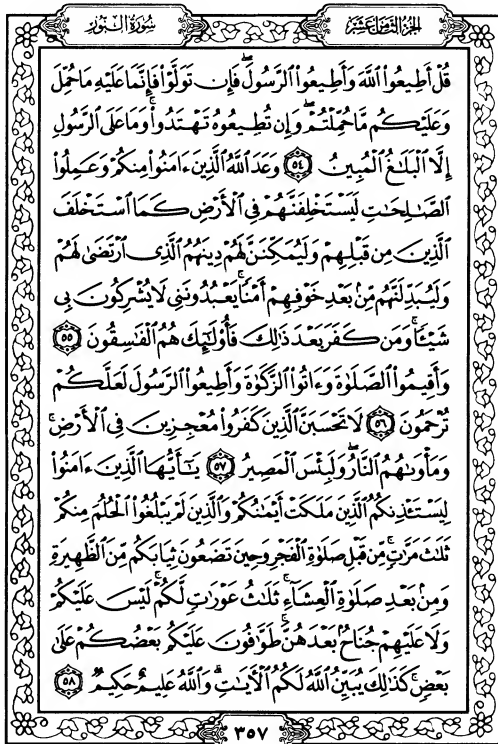 الجزء الثامن عشر
سورة النور
قُلْ أَطِيعُوا۟ ٱللَّهَ وَأَطِيعُوا۟ ٱلرَّسُولَ ۖ فَإِن تَوَلَّوْا۟ فَإِنَّمَا عَلَيْهِ مَا حُمِّلَ
وَعَلَيْكُم مَّا حُمِّلْتُمْ ۖ وَإِن تُطِيعُوهُ تَهْتَدُوا۟ ۚ وَمَا عَلَى ٱلرَّسُولِ
إِلَّا ٱلْبَلَـٰغُ ٱلْمُبِينُ ٥٤ وَعَدَ ٱللَّهُ ٱلَّذِينَ ءَامَنُوا۟ مِنكُمْ وَعَمِلُوا۟
ٱلصَّـٰلِحَـٰتِ لَيَسْتَخْلِفَنَّهُمْ فِى ٱلْأَرْضِ كَمَا ٱسْتَخْلَفَ
ٱلَّذِينَ مِن قَبْلِهِمْ وَلَيُمَكِّنَنَّ لَهُمْ دِينَهُمُ ٱلَّذِى ٱرْتَضَىٰ لَهُمْ
وَلَيُبَدِّلَنَّهُم مِّنۢ بَعْدِ خَوْفِهِمْ أَمْنًا ۚ يَعْبُدُونَنِى لَا يُشْرِكُونَ بِى
شَيْـًٔا ۚ وَمَن كَفَرَ بَعْدَ ذَٰلِكَ فَأُو۟لَـٰٓئِكَ هُمُ ٱلْفَـٰسِقُونَ ٥٥
وَأَقِيمُوا۟ ٱلصَّلَوٰةَ وَءَاتُوا۟ ٱلزَّكَوٰةَ وَأَطِيعُوا۟ ٱلرَّسُولَ لَعَلَّكُمْ
تُرْحَمُونَ ٥٦ لَا تَحْسَبَنَّ ٱلَّذِينَ كَفَرُوا۟ مُعْجِزِينَ فِى ٱلْأَرْضِ ۚ
وَمَأْوَىٰهُمُ ٱلنَّارُ ۖ وَلَبِئْسَ ٱلْمَصِيرُ ٥٧ يَـٰٓأَيُّهَا ٱلَّذِينَ ءَامَنُوا۟
لِيَسْتَـْٔذِنكُمُ ٱلَّذِينَ مَلَكَتْ أَيْمَـٰنُكُمْ وَٱلَّذِينَ لَمْ يَبْلُغُوا۟ ٱلْحُلُمَ مِنكُمْ
ثَلَـٰثَ مَرَّٰتٍ ۚ مِّن قَبْلِ صَلَوٰةِ ٱلْفَجْرِ وَحِينَ تَضَعُونَ ثِيَابَكُم مِّنَ ٱلظَّهِيرَةِ
وَمِنۢ بَعْدِ صَلَوٰةِ ٱلْعِشَآءِ ۚ ثَلَـٰثُ عَوْرَٰتٍ لَّكُمْ ۚ لَيْسَ عَلَيْكُمْ
وَلَا عَلَيْهِمْ جُنَاحٌۢ بَعْدَهُنَّ ۚ طَوَّٰفُونَ عَلَيْكُم بَعْضُكُمْ عَلَىٰ
بَعْضٍ ۚ كَذَٰلِكَ يُبَيِّنُ ٱللَّهُ لَكُمُ ٱلْـَٔايَـٰتِ ۗ وَٱللَّهُ عَلِيمٌ حَكِيمٌ ٥٨
٣٥٧